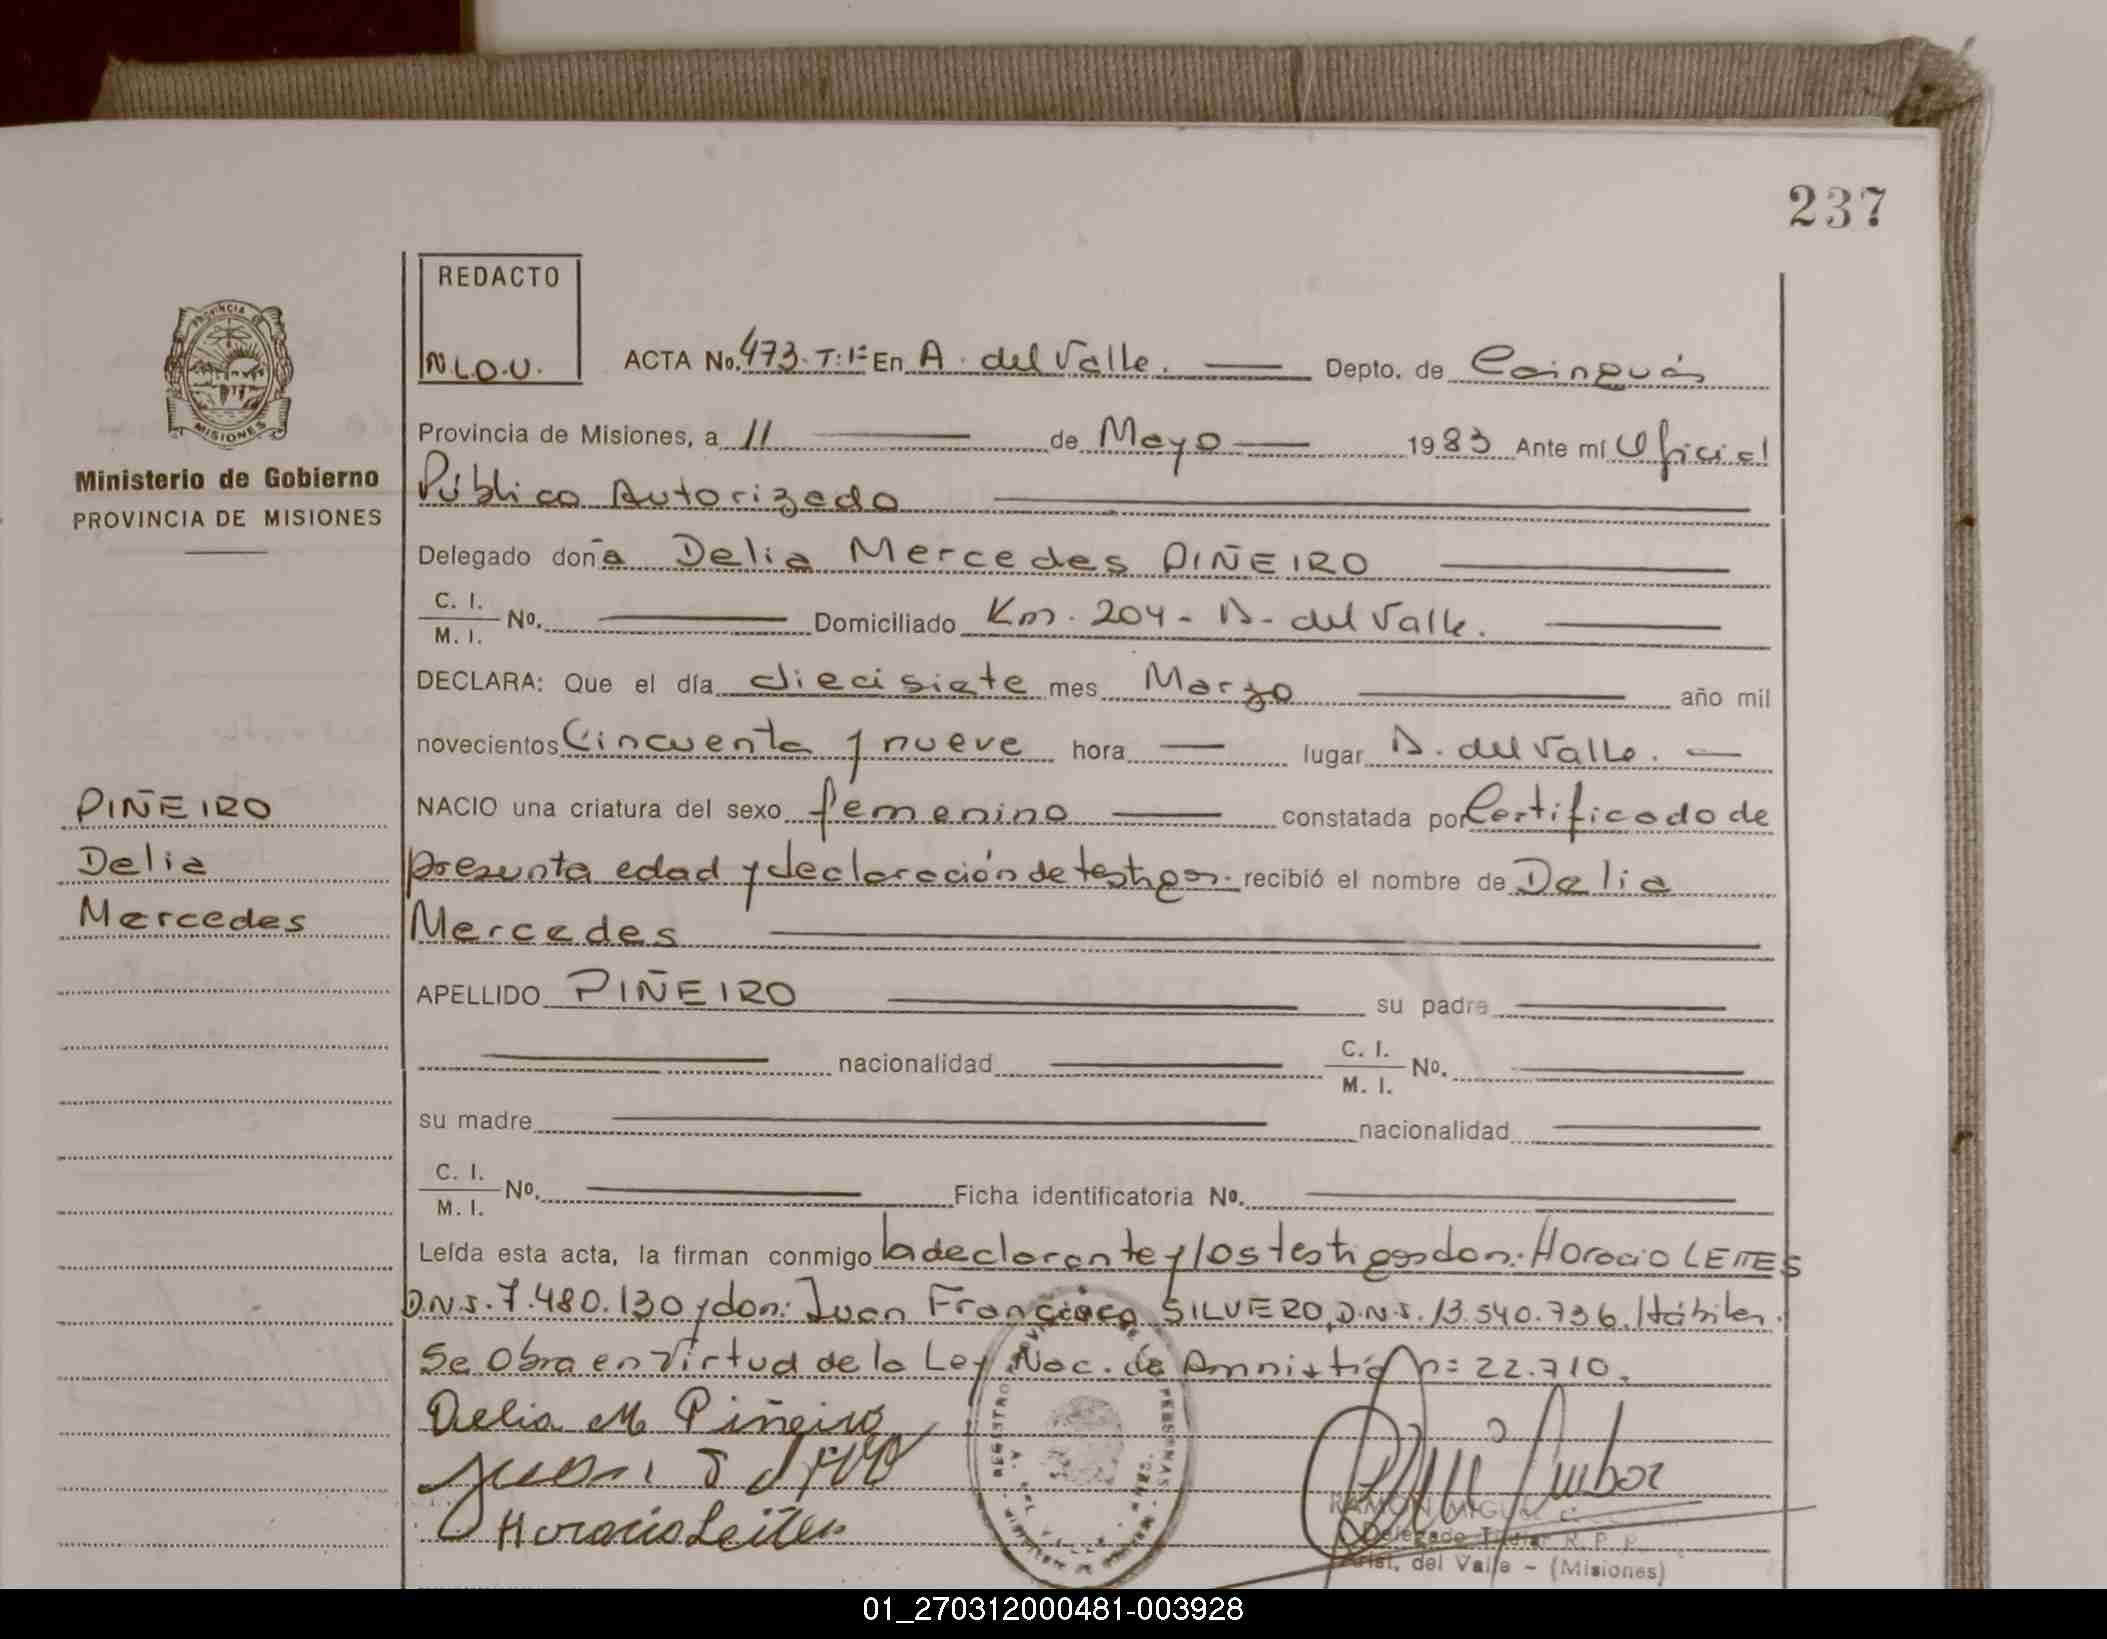 237
REDACTO
N.L.D.V.
PROVINCIA DE
MISIONES
Ministerio de Gobierno
PROVINCIA DE MISIONES
ACTA No. 473. T: 1º En A. del Valle. Depto. de Cainguás
Provincia de Misiones, a 11 de Mayo 1983 Ante mí Oficial
Público Autorizado
Delegado doña Delia Mercedes PIÑEIRO
C. I.
M. I. No. Domiciliado Km. 204 - A. del Valle.
DECLARA: Que el día diecisiete mes Marzo año mil
novecientos Cincuenta y nueve hora lugar A. del Valle.
NACIO una criatura del sexo femenino constatada por Certificado de
presunta edad y declaración de testigos. recibió el nombre de Delia
Mercedes
PIÑEIRO
Delia
Mercedes
APELLIDO PIÑEIRO su padre
nacionalidad C. I.
M. I. No.
su madre nacionalidad
C. I.
M. I. No. Ficha identificatoria No.
Leída esta acta, la firman conmigo la declarante y los testigos don: Horacio LEITES
D.N.I. 7.480.130 y don: Juan Francisco SILVERO, D.N.I. 13.540.736. Hábiles.
Se Obra en Virtud de la Ley Nac. de Amnistía nº 22.710.
Delia M Piñeiro
Horacio Leites
RAMON MIGUEL
Delegado Titular R. P. P.
Arist. del Valle - (Misiones)
01_270312000481-003928